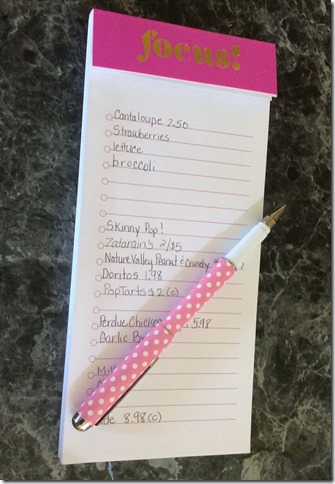 focus!
Cantaloupe 2.50
Strawberries
lettuce
broccoli
Skinny Pop!
Zatarain's 2/$5
Nature Valley Peanut & Crunchy
Doritos 1.98
PopTarts $2 (c)
Perdue Chicken 5.98
Garlic
8.98 (c)